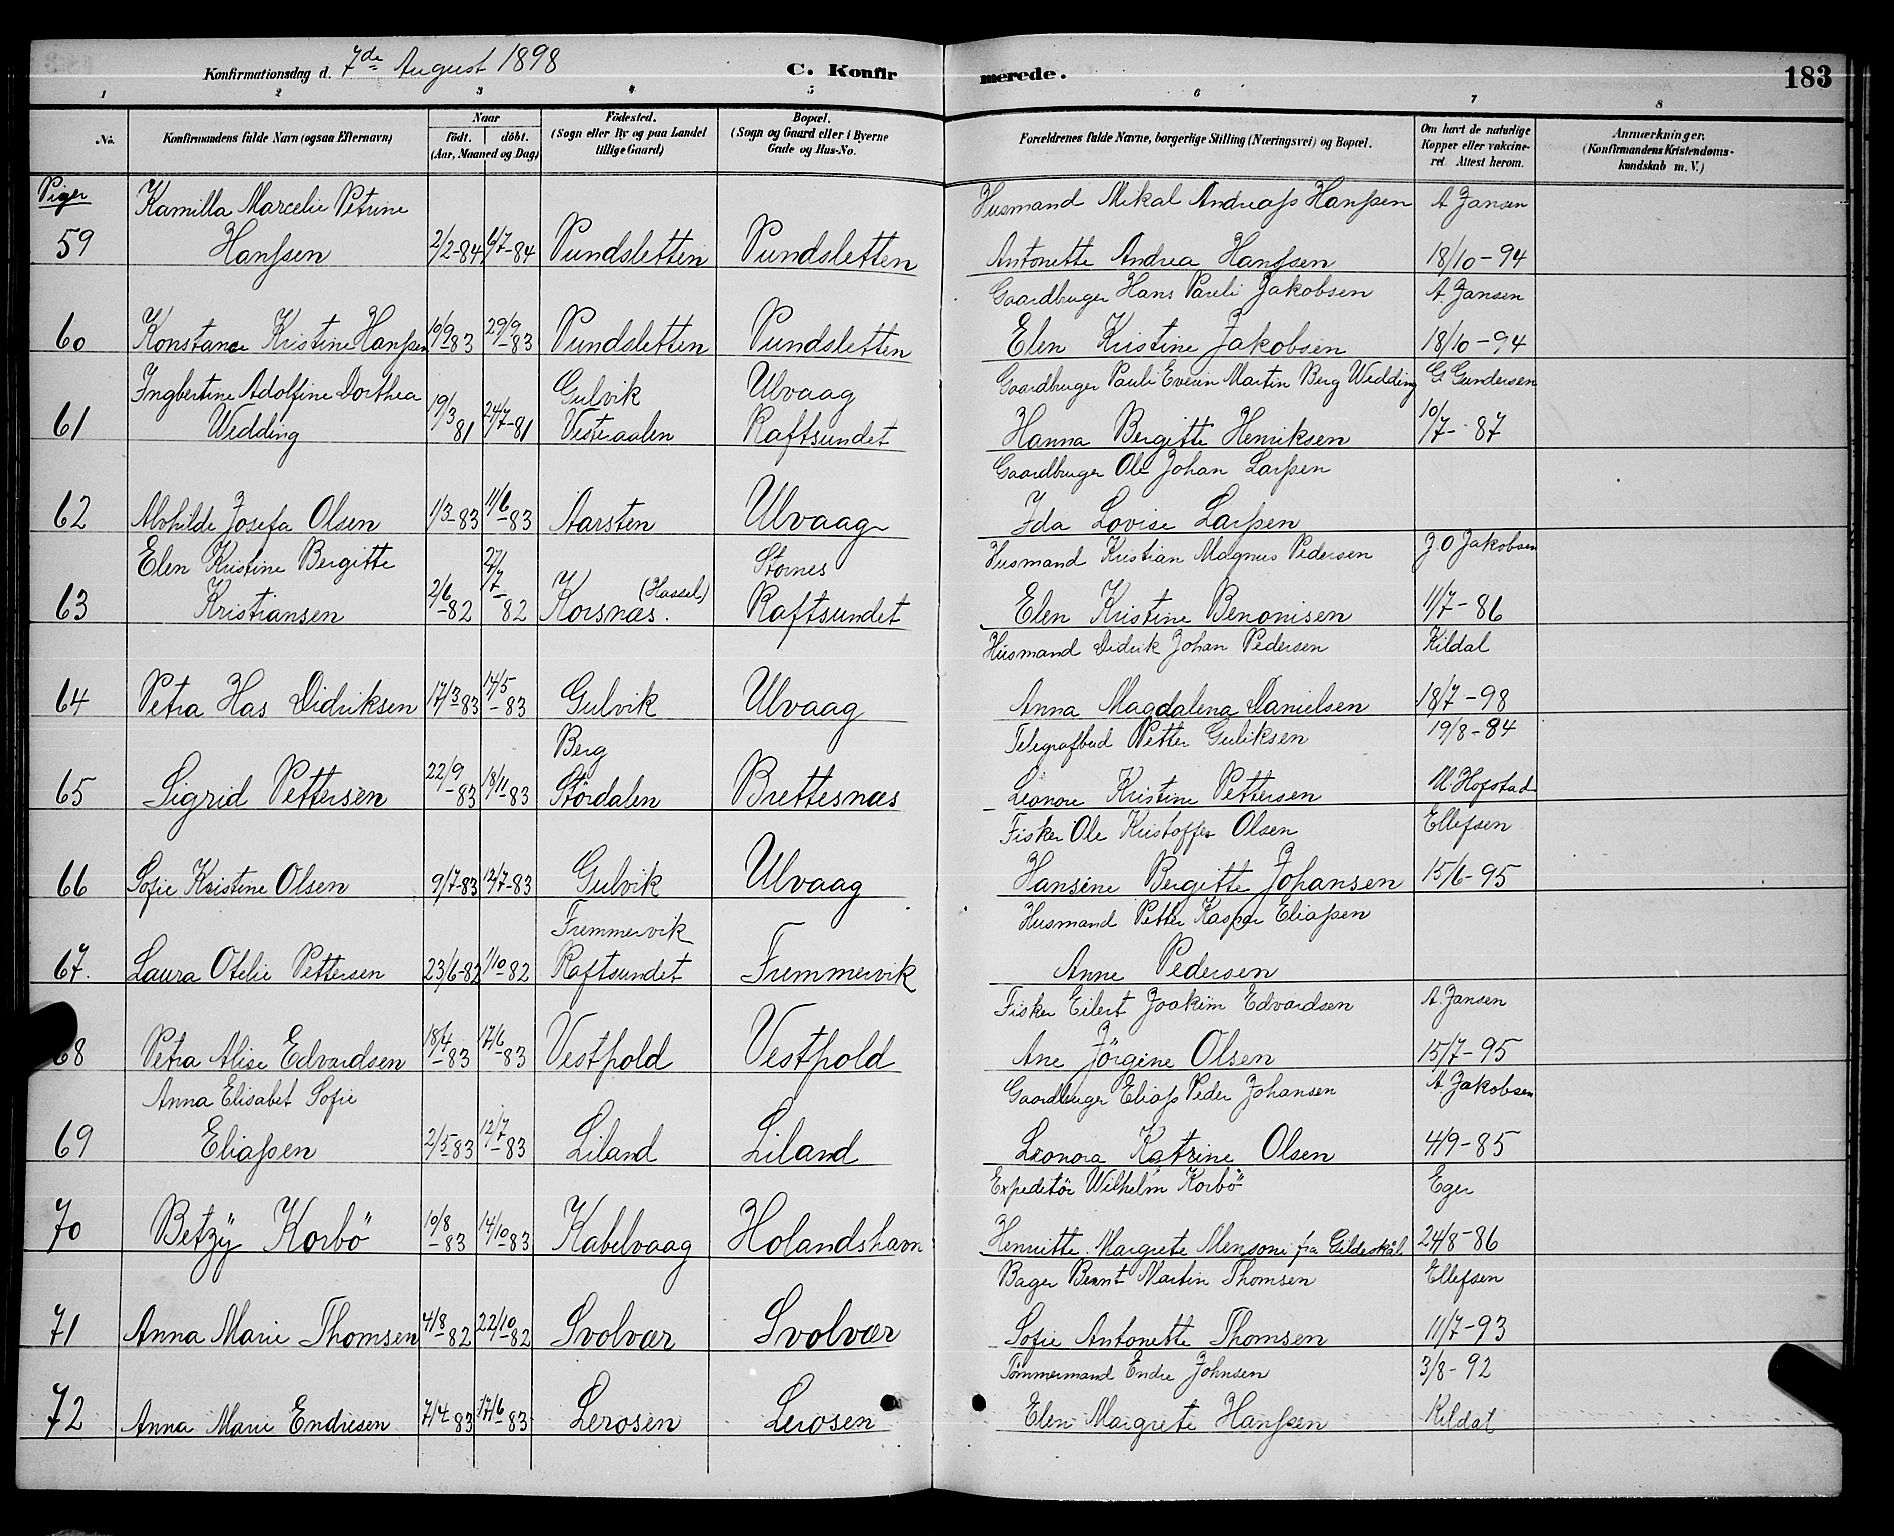 Konfirmationsdag d. 7de August 1898 C. Konfirmerede. 183
1 2 3 4 5 6 7 8
No. Konfirmandens fulde Navn (ogsaa Efternavn) Naar født. døbt. (Aar, Maaned og Dag) Fødested. (Sogn eller By og paa Landet tillige Gaard) Bopæl. (Sogn og Gaard eller i Byerne Gade og Hus-No. Forældrenes fulde Navne, borgerlige Stilling (Næringsvei) og Bopæl. Om havt de naturlige Kopper eller vaccineret Attest herom. Anmærkninger. (Konfirmandens Kristendomskundskab m. V.)
Piger Kamilla Marcelie Petrine Husmand Mikal Andreass Hanssen A Jansen
59 Hanssen 2/2-84 6/7-84 Pundsletten Pundsletten Antonette Andrea Hanssen 18/10-94
Gaardbruger Hans Pareli Jakobsen A. Jansen
60 Konstance Kristine Hanssen 10/9-83 29/9-83 Pundsletten Pundsletten Elen Kristine Jakobsen 18/10-94
Ingbertine Adolfine Dorthea Gulvik Ulvaag Gaardbruger Pauli Everin Martin Berg Wedding G. Gundersen
61 Wedding 19/3 81 24/7-81 Vesteraalen Raftsundet Hanna Bergitte Henriksen 10/7-87
Gaardbruger Ole Johan Larssen
62 Alvhilde Josefa Olsen 1/3-83 11/6-83 Aarsten Ulvaag Ida Lovise Larssen
Elen Kristine Bergitte Stornes Husmand Kristian Magnus Pedersen J O Jakobsen
63 Kristiansen 2/6-82 27/7-82 Korsnæs. (Hassel) Raftsundet Elen Kristine Benonisen 11/7-86
Husmand Didrik Johan Pedersen Kildal
64 Petra Has Didriksen 17/3-83 14/5-83 Gulvik Ulvaag Anna Magdalena Danielsen 18/7-98
Berg Telegrafbud Petter Guliksen 19/8-84
65 Sigrid Pettersen 22/9-83 18/11-83 Stördalen Brettesnæs Leonore Kristine Pettersen M Hofstad
Fisker Ole Kristoffer Olsen Ellefsen
66 Sofie Kristine Olsen 9/7-83 12/7-83 Gulvik Ulvaag Hansine Bergitte Johansen 15/6-95
Fremmervik Husmand Petter Kasper Eliassen
67. Laura Otelie Pettersen 23/6-82 1/10-82 Raftsundet Fremmervik Anne Pedersen
Fisker Eilert Joakim Edvardsen A. Jansen
68 Petra Alise Edvardsen 18/4-83 17/6-83 Vestpold Vestpold Ane Jörgine Olsen 15/7-95
Anna Elisabet Sofie Gaardbruger Eliass Peder Johansen A. Jakobsen
69 Eliassen 2/5-83 12/7-83 Liland Liland Leonora Katrine Olsen 4/9-85
Expeditör Wilhelm Korbö Eger
70 Betzy Korbö 19/8-83 14/10-83 Kabelvaag Holandshavn Henriette Margrete Mensoni fra Gildeskål 24/8-86
Bager Bernt Martin Thomsen Ellefsen
71 Anna Marie Thomsen 4/8-82 22/10-82 Svolvær Svolvær Sofie Antonette Thomsen 11/7-93
Tömmermand Endre Johnsen 3/8-92
72 Anna Marie Endresen 7/4-83 17/6-83 Lerosen Lerosen Elen Margrete Hanssen Kildal